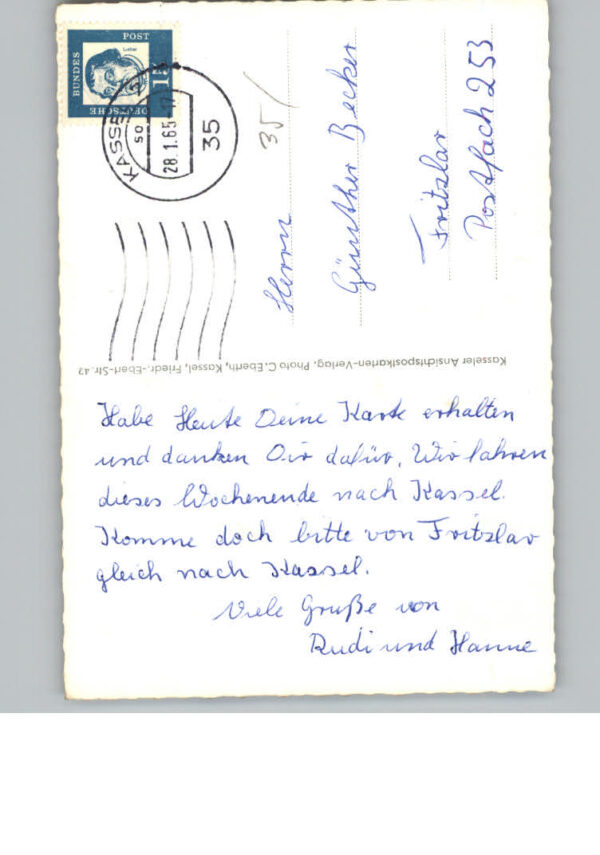 DEUTSCHE
BUNDES
POST
Luther
15
KASSEL
so
28.1.65-17
35
35/
Herrn
Günther Becker
Fritzlar
Postfach 253
Kasseler Ansichtspostkarten-Verlag, Photo C. Eberth, Kassel, Friedr.-Ebert-Str. 47
Habe Heute Deine Karte erhalten
und danken Dir dafür. Wir fahren
dieses Wochenende nach Kassel.
Komme doch bitte von Fritzlar
gleich nach Kassel.
Viele Gruße von
Rudi und Hanne